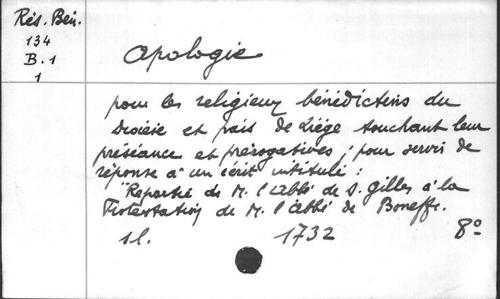 Rés. Bén.
134
B. 1
1
Apologie
pour les religieux bénédictins du
diocèse et païs de Liège touchant leur
préséance et prérogatives ; pour servir de
réponse à un écrit intitulé :
"Repartie de M. l'abbé de S. Gilles à la
Protestation de M. l'abbé de Boneffe.
s.l. 1732 8°